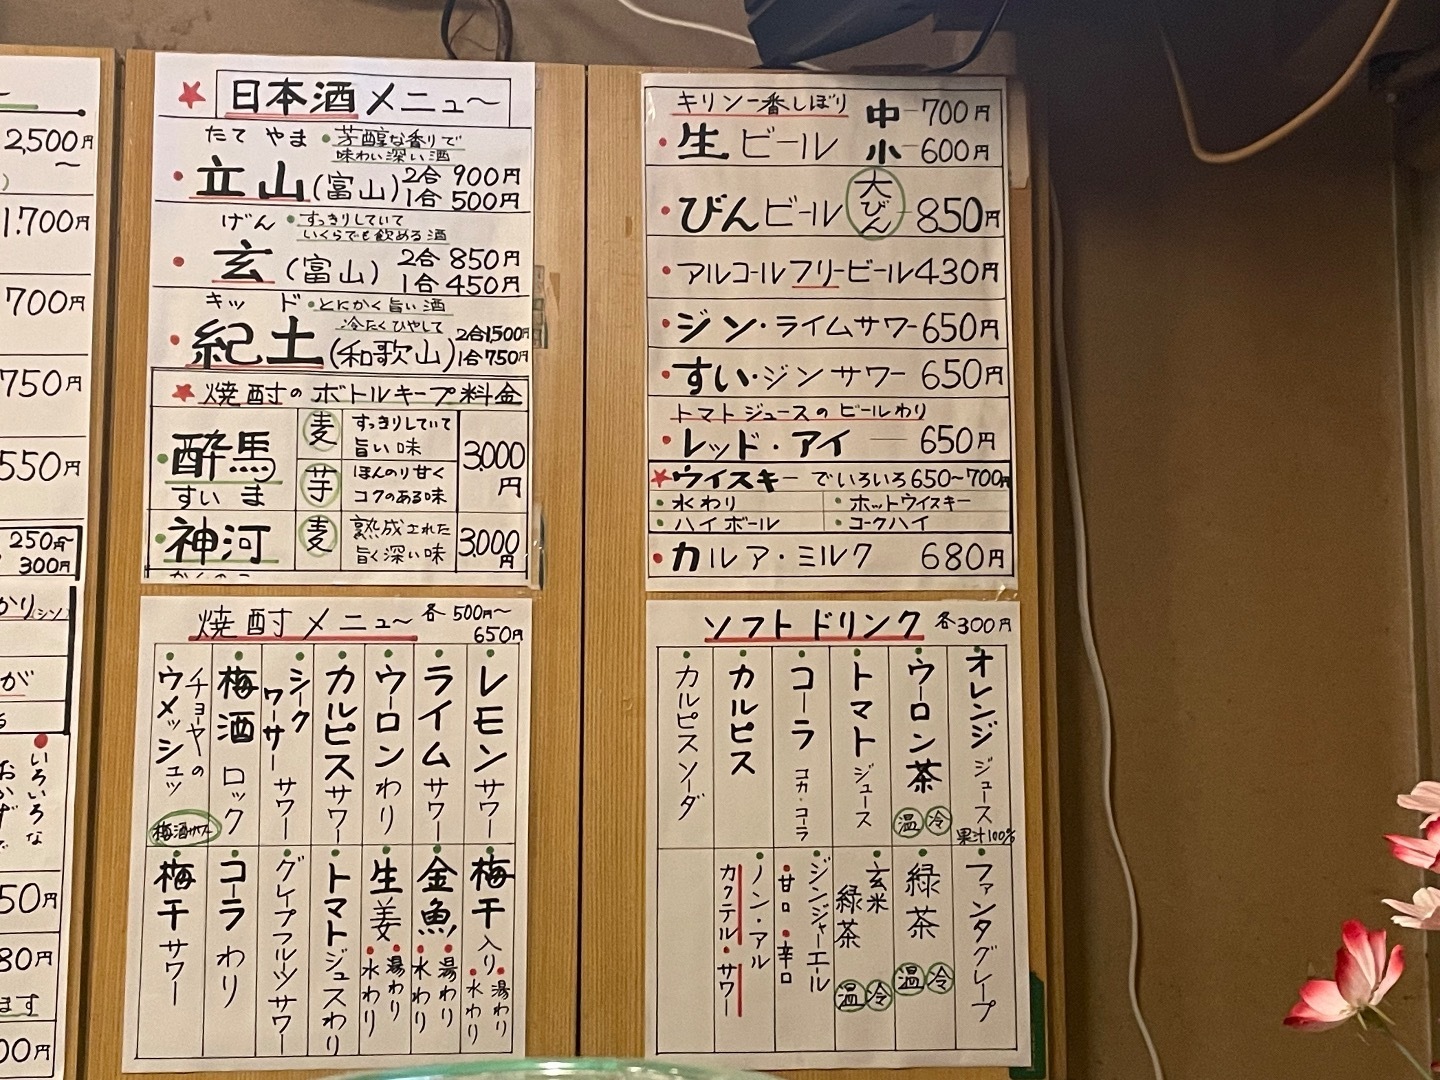 2,500円
～
1.700円
700円
750円
550円
250円～
300円
かり(シソ)
が
いろいろな
おかげで
50円
80円
ます
00円
★日本酒メニュ～
たて やま ・芳醇な香りで
味わい深い酒
・立山(富山) 2合 900円
1合 500円
げん ・すっきりしていて
いくらでも飲める酒
・玄(富山) 2合 850円
1合 450円
キッド ・とにかく旨い酒
冷たくひやして
・紀土(和歌山) 2合1,500円
1合750円
★焼酎のボトルキープ料金
・酔馬
すいま
麦 すっきりしていて
旨い味
芋 ほんのり甘く
コクのある味
3,000円
・神河 麦 熟成された
旨く深い味
3,000円
焼酎メニュ～ 各500円～
650円
・レモンサワー
・ライムサワー
・ウーロンわり
・カルピスサワー
・シークワーサーサワー
・梅酒ロック
・チョーヤのウメッシュ
梅酒サワー
・梅干入り ・湯わり ・水わり
・金魚 ・湯わり ・水わり
・生姜 ・湯わり ・水わり
・トマトジュースわり
・グレイプフルーツサワー
・コーラわり
・梅干サワー
キリン一番しぼり
・生ビール 中－700円
小－600円
・びんビール 大びん－850円
・アルコールフリービール430円
・ジン・ライムサワー650円
・すい・ジンサワー 650円
トマトジュースのビールわり
・レッド・アイ ― 650円
★ウイスキーでいろいろ650～700円
・水わり ・ホットウイスキー
・ハイボール ・コークハイ
・カルア・ミルク 680円
ソフトドリンク 各300円
・オレンジジュース
果汁100%
・ウーロン茶 温 冷
・トマトジュース
・コーラ コカ・コーラ
・カルピス
・カルピスソーダ
・ファンタグレープ
・緑茶 温 冷
・玄米緑茶 温 冷
・ジンジャーエール
・甘口・辛口
・ノン・アル
カクテル・サワー